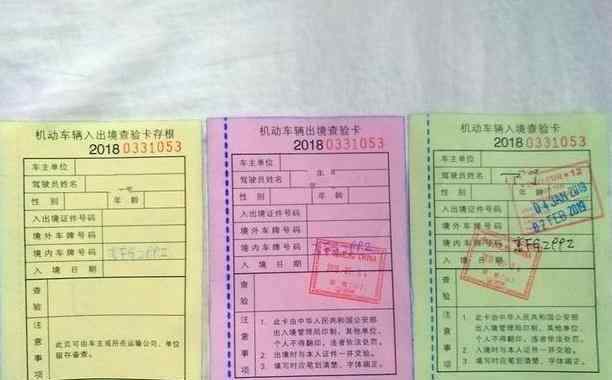 机动车辆入出境查验卡存根
2018 0331053
车主单位
驾驶员姓名
性别
年龄
入出境证件号码
境外车牌号码
境内车牌号码
入境日期
查验
注意事项
此页可由车主或所在运输公司、单位
留存备查。
机动车辆出境查验卡
2018 0331053
车主单位
驾驶员姓名
性别
年龄
入出境证件号码
境外车牌号码
境内车牌号码
入境日期
CHINA
查验
注意事项
1. 此卡由中华人民共和国公安部
出入境管理局印制，其他单位、
个人不得翻印，违者依法惩处。
2. 出境时与本人证件一并交验。
3. 填写时应笔划清楚、字体端正。
机动车辆入境查验卡
2018 0331053
车主单位
驾驶员姓名
性别
年龄
04 JAN 2019
02 FEB 2019
入出境证件号码
境外车牌号码
境内车牌号码
入境日期
查验
注意事项
1. 此卡由中华人民共和国公安部
出入境管理局印制，其他单位、
个人不得翻印，违者依法惩处。
2. 入境时与本人证件一并交验。
3. 填写时应笔划清楚、字体端正。